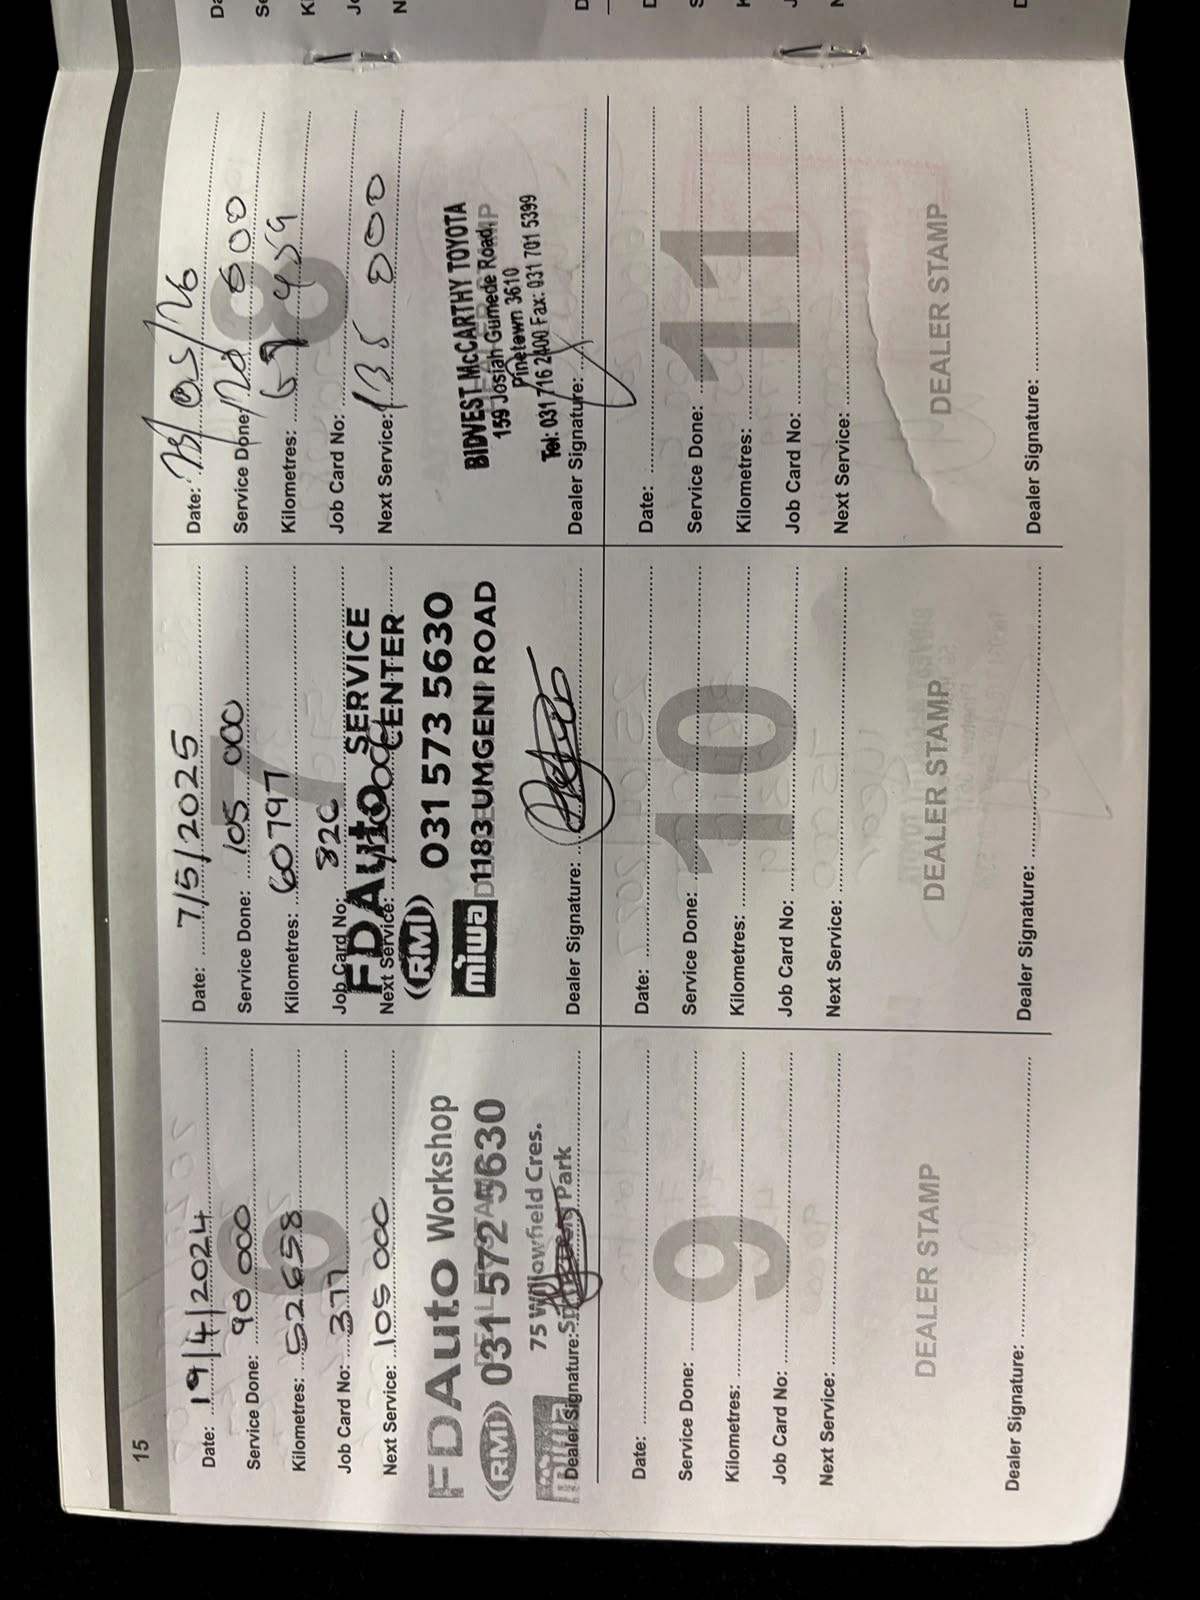 15
Date: 19/4/2024
Service Done: 90 000
Kilometres: 52658
Job Card No: 377
Next Service: 105 000
FDAuto Workshop
(RMI) 031 572 5630
miwa 75 Willowfield Cres.
Park
Dealer Signature:
Date: 7/5/2025
Service Done: 105 000
Kilometres: 60797
Job Card No: 826
Next Service:
FDAuto SERVICE CENTER
(RMI) 031 573 5630
miwa 1183 UMGENI ROAD
Dealer Signature:
8
Date: /05/26
Service Done: 120 000
Kilometres: 459
Job Card No:
Next Service: 135 000
BIDVEST McCARTHY TOYOTA
159 Josiah Gumede Road,
Pinetown 3610
Tel: 031 716 2400 Fax: 031 701 5399
Dealer Signature:
9
Date:
Service Done:
Kilometres:
Job Card No:
Next Service:
DEALER STAMP
Dealer Signature:
10
Date:
Service Done:
Kilometres:
Job Card No:
Next Service:
DEALER STAMP
Dealer Signature:
11
Date:
Service Done:
Kilometres:
Job Card No:
Next Service:
DEALER STAMP
Dealer Signature: